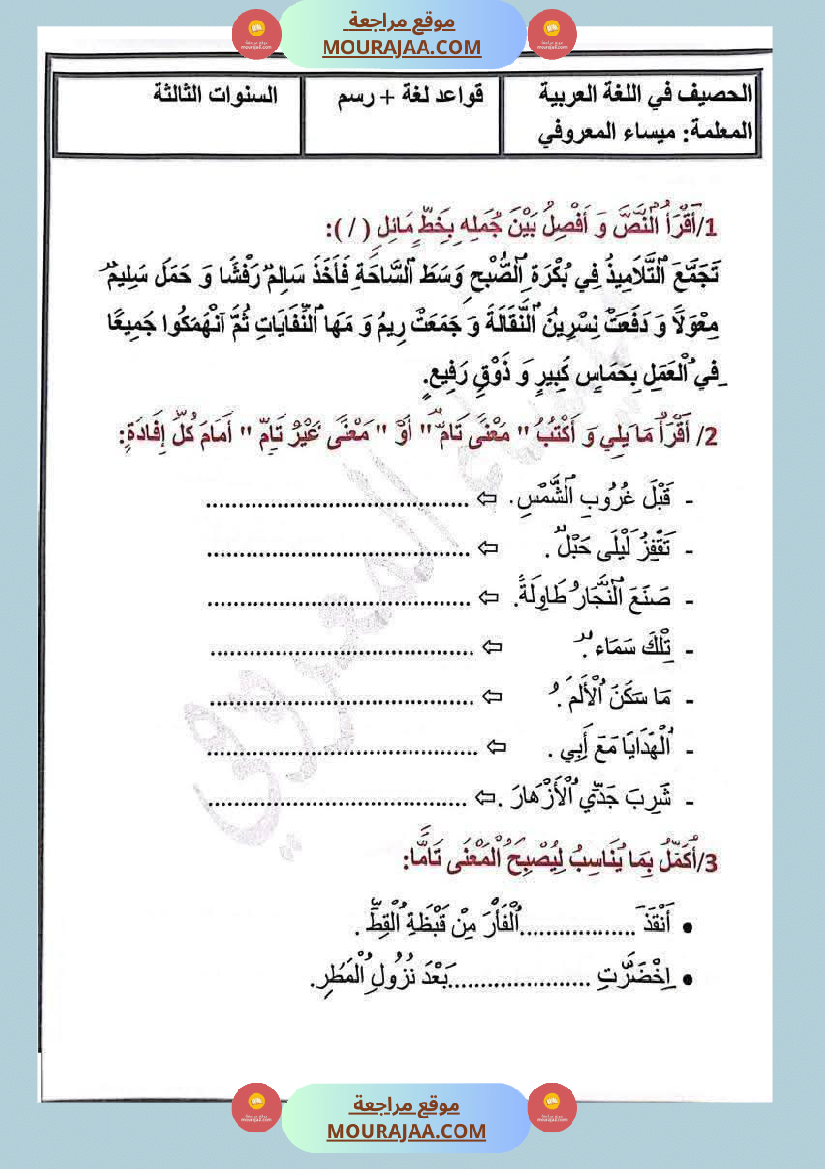 موقع مراجعة
MOURAJAA.COM
الحصيف في اللغة العربية
المعلمة: ميساء المعروفي
قواعد لغة + رسم
السنوات الثالثة
1/أَقْرَأُ ٱلنَّصَّ وَ أَفْصِلُ بَيْنَ جُمَلِهِ بِخَطٍّ مَائِلٍ ( / ):
تَجَمَّعَ ٱلتَّلَامِيذُ فِي بُكْرَةِ ٱلصُّبْحِ وَسَطَ ٱلسَّاحَةِ فَأَخَذَ سَالِمٌ رَفْشًا وَ حَمَلَ سَلِيمٌ
مِعْوَلًا وَ دَفَعَتْ نِسْرِينُ ٱلنَّقَّالَةَ وَ جَمَعَتْ رِيمُ وَ مَهَا ٱلنِّفَايَاتِ ثُمَّ ٱنْهَمَكُوا جَمِيعًا
فِي ٱلْعَمَلِ بِحَمَاسٍ كَبِيرٍ وَ ذَوْقٍ رَفِيعٍ.
2/ أَقْرَأُ مَا يَلِي وَ أَكْتُبُ " مَعْنًى تَامٌّ " أَوْ " مَعْنًى غَيْرُ تَامٍّ " أَمَامَ كُلِّ إِفَادَةٍ:
- قَبْلَ غُرُوبِ ٱلشَّمْسِ. ⇦ ..........................................
- تَقْفِزُ لَيْلَى حَبْلٌ . ⇦ ..........................................
- صَنَعَ ٱلنَّجَّارُ طَاوِلَةً. ⇦ ..........................................
- تِلْكَ سَمَاءٌ . ⇦ ..........................................
- مَا سَكَنَ ٱلْأَلَمُ . ⇦ ..........................................
- ٱلْهَدَايَا مَعَ أَبِي . ⇦ ..........................................
- شَرِبَ جَدِّي ٱلْأَزْهَارَ . ⇦ ..........................................
3/أُكَمِّلُ بِمَا يُنَاسِبُ لِيُصْبِحَ ٱلْمَعْنَى تَامًّا:
• أَنْقَذَ ..................ٱلْفَأْرَ مِنْ قَبْظَةِ ٱلْقِطِّ .
• اِخْضَرَّتِ ......................بَعْدَ نُزُولِ ٱلْمَطَرِ.
موقع مراجعة
MOURAJAA.COM